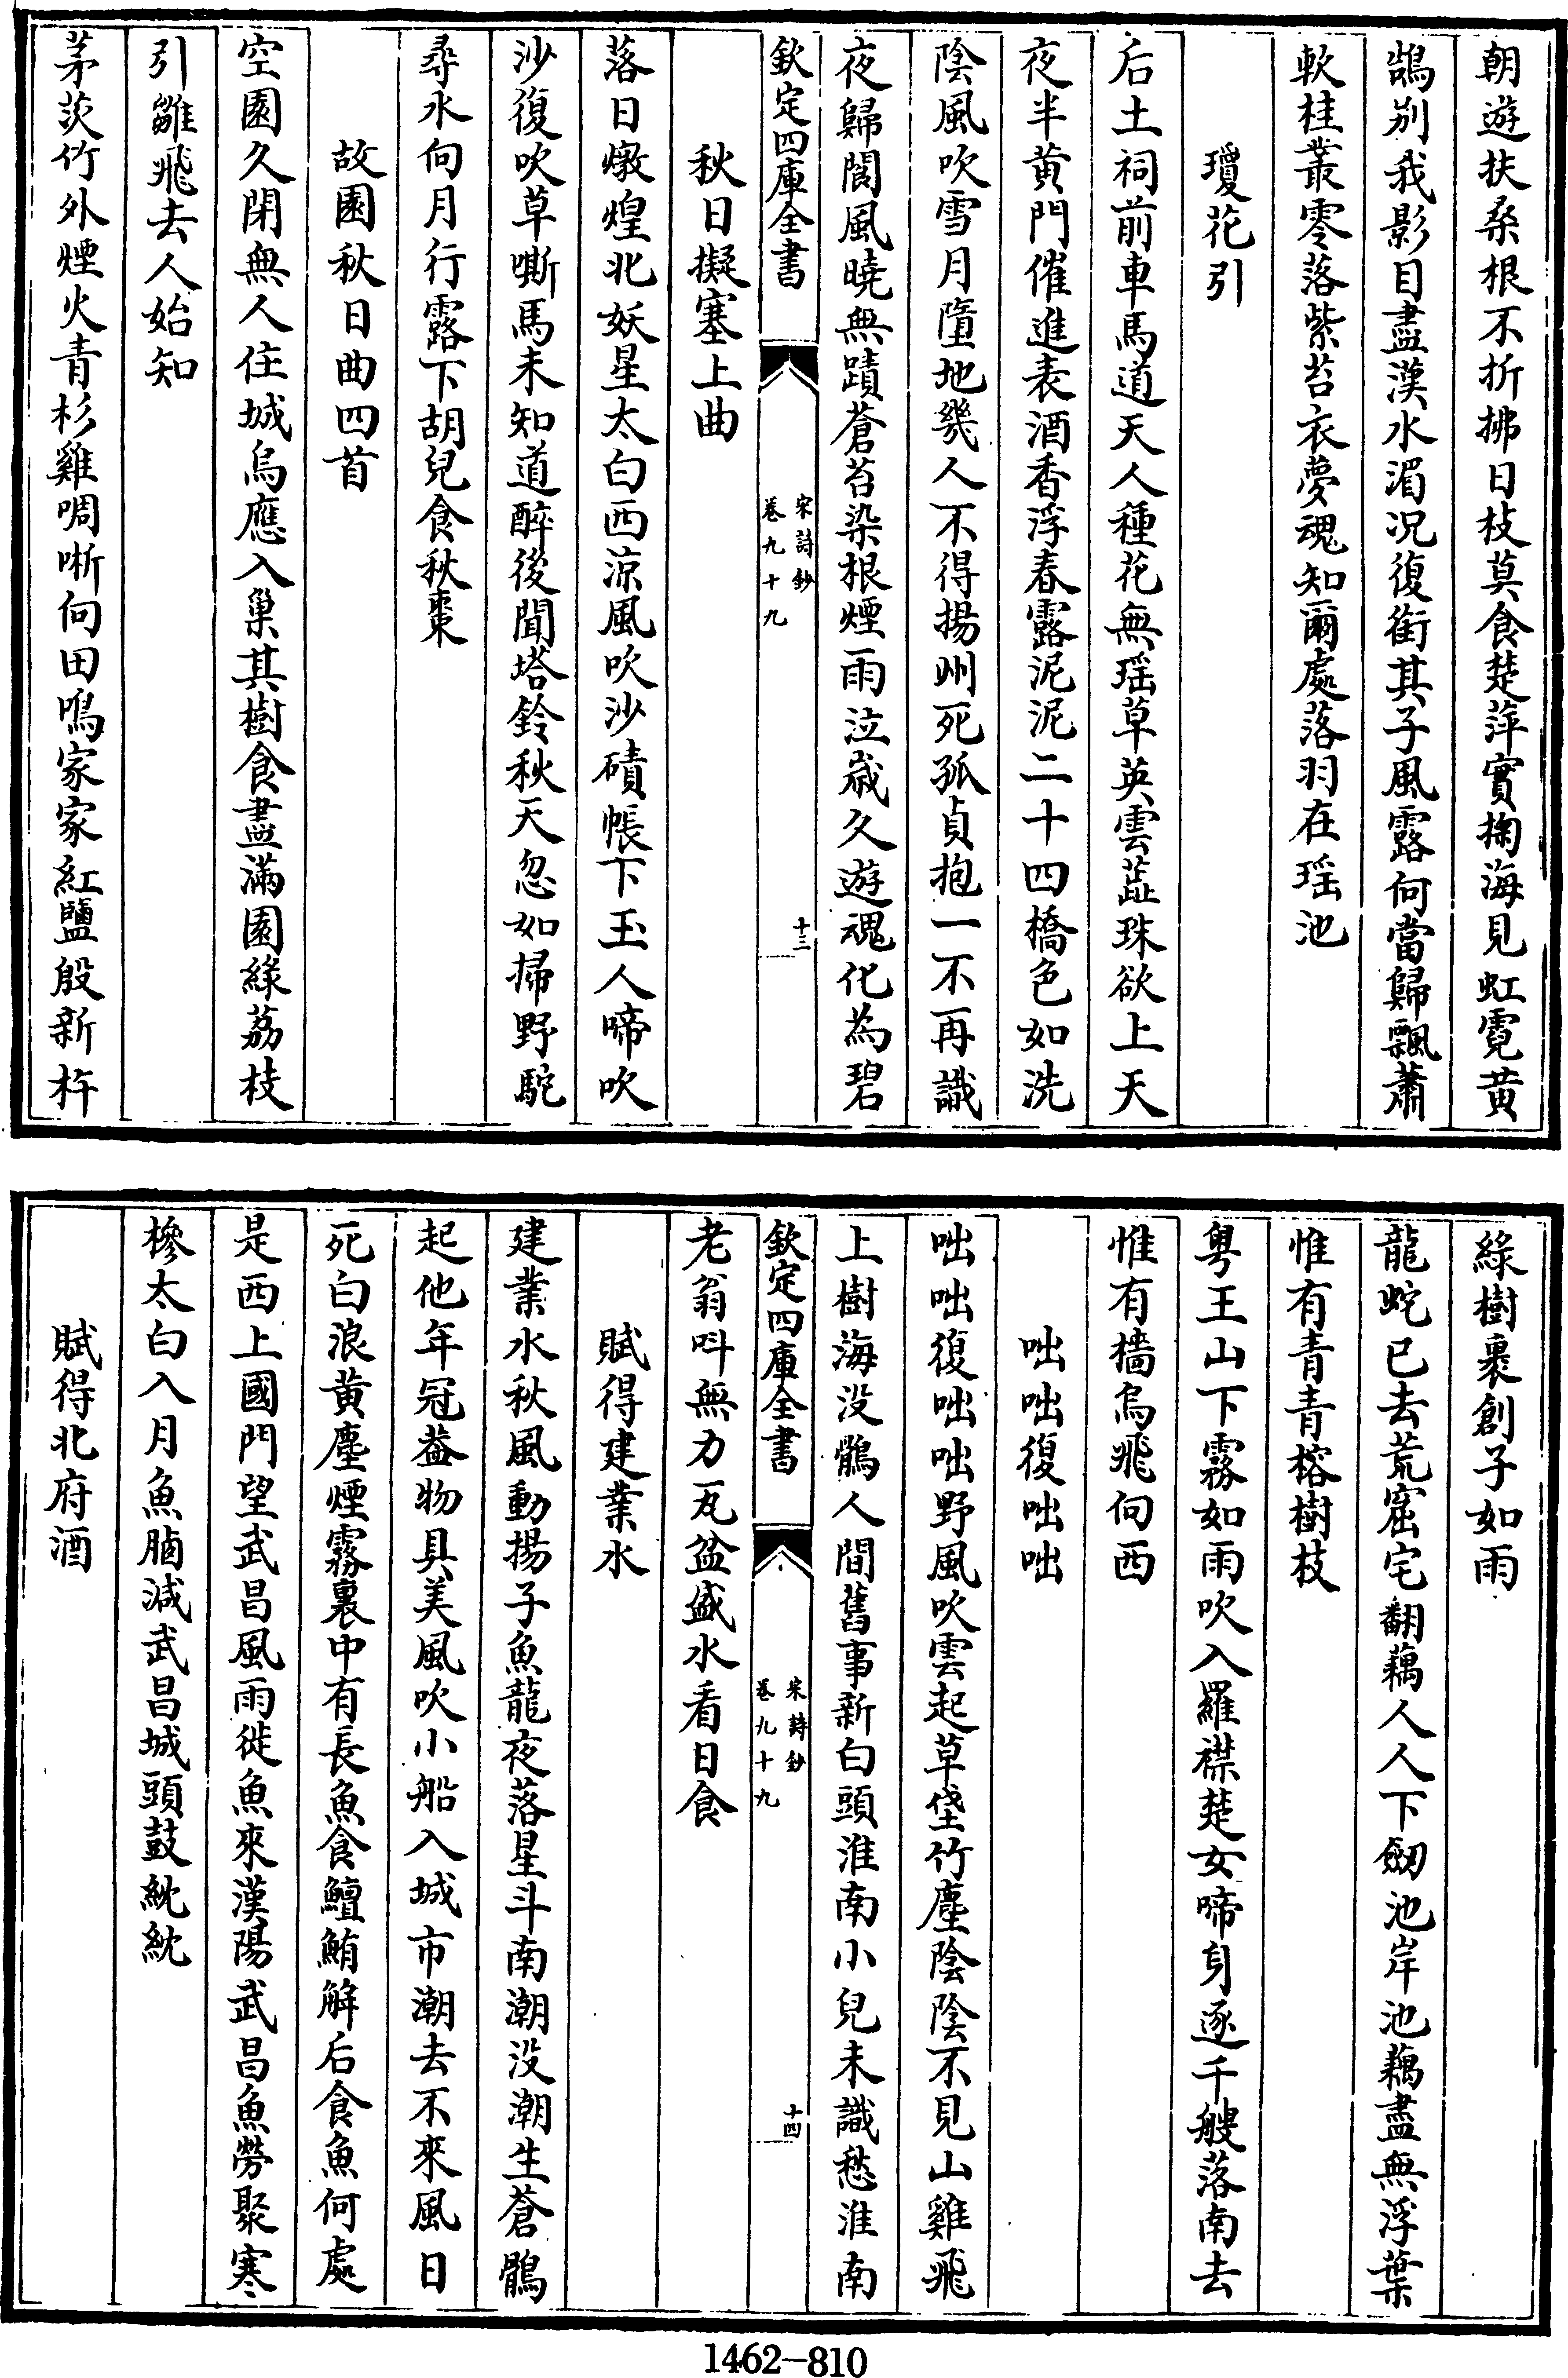 朝遊扶桑根不折拂日枝莫食楚萍實掬海見虹霓黄
鵠别我影目盡漢水湄况復銜其子風露何當歸飄蕭
軟桂叢零落紫苔衣夢魂知爾處落羽在瑶池
瓊花引
后土祠前車馬道天人種花無瑶草英雲蕋珠欲上天
夜半黄門催進表酒香浮春露泥泥二十四橋色如洗
陰風吹雪月墮地幾人不得揚州死孤貞抱一不再識
夜歸閬風曉無蹟蒼苔染根煙雨泣歲久遊魂化為碧
欽定四庫全書
宋詩鈔
卷九十九
十三
秋日擬塞上曲
落日燉煌北妖星太白西凉風吹沙磧帳下玉人啼吹
沙復吹草嘶馬未知道醉後聞塔鈴秋天忽如掃野駝
尋水向月行露下胡兒食秋棗
故園秋日曲四首
空園久閉無人住城烏應入巢其樹食盡滿園綠荔枝
引雛飛去人始知
茅茨竹外煙火青杉雞啁哳向田鳴家家紅鹽殷新杵
綠樹裹創子如雨
龍蛇已去荒窟宅翻藕人人下劒池岸池藕盡無浮葉
惟有青青榕樹枝
粤王山下霧如雨吹入羅襟楚女啼身逐千艘落南去
惟有檣烏飛向西
咄咄復咄咄
咄咄復咄咄野風吹雲起草垡竹塵陰陰不見山雞飛
上樹海没鶻人間舊事新白頭淮南小兒未識愁淮南
欽定四庫全書
宋詩鈔
卷九十九
十四
老翁呌無力瓦盆盛水看日食
賦得建業水
建業水秋風動揚子魚龍夜落星斗南潮没潮生蒼鶻
起他年冠葢物具美風吹小船入城市潮去不來風日
死白浪黄塵煙霧裏中有長魚食鱣鮪解后食魚何處
是西上國門望武昌風雨徙魚來漢陽武昌魚勞聚寒
槮太白入月魚腦減武昌城頭鼓紞紞
賦得北府酒
1462-810